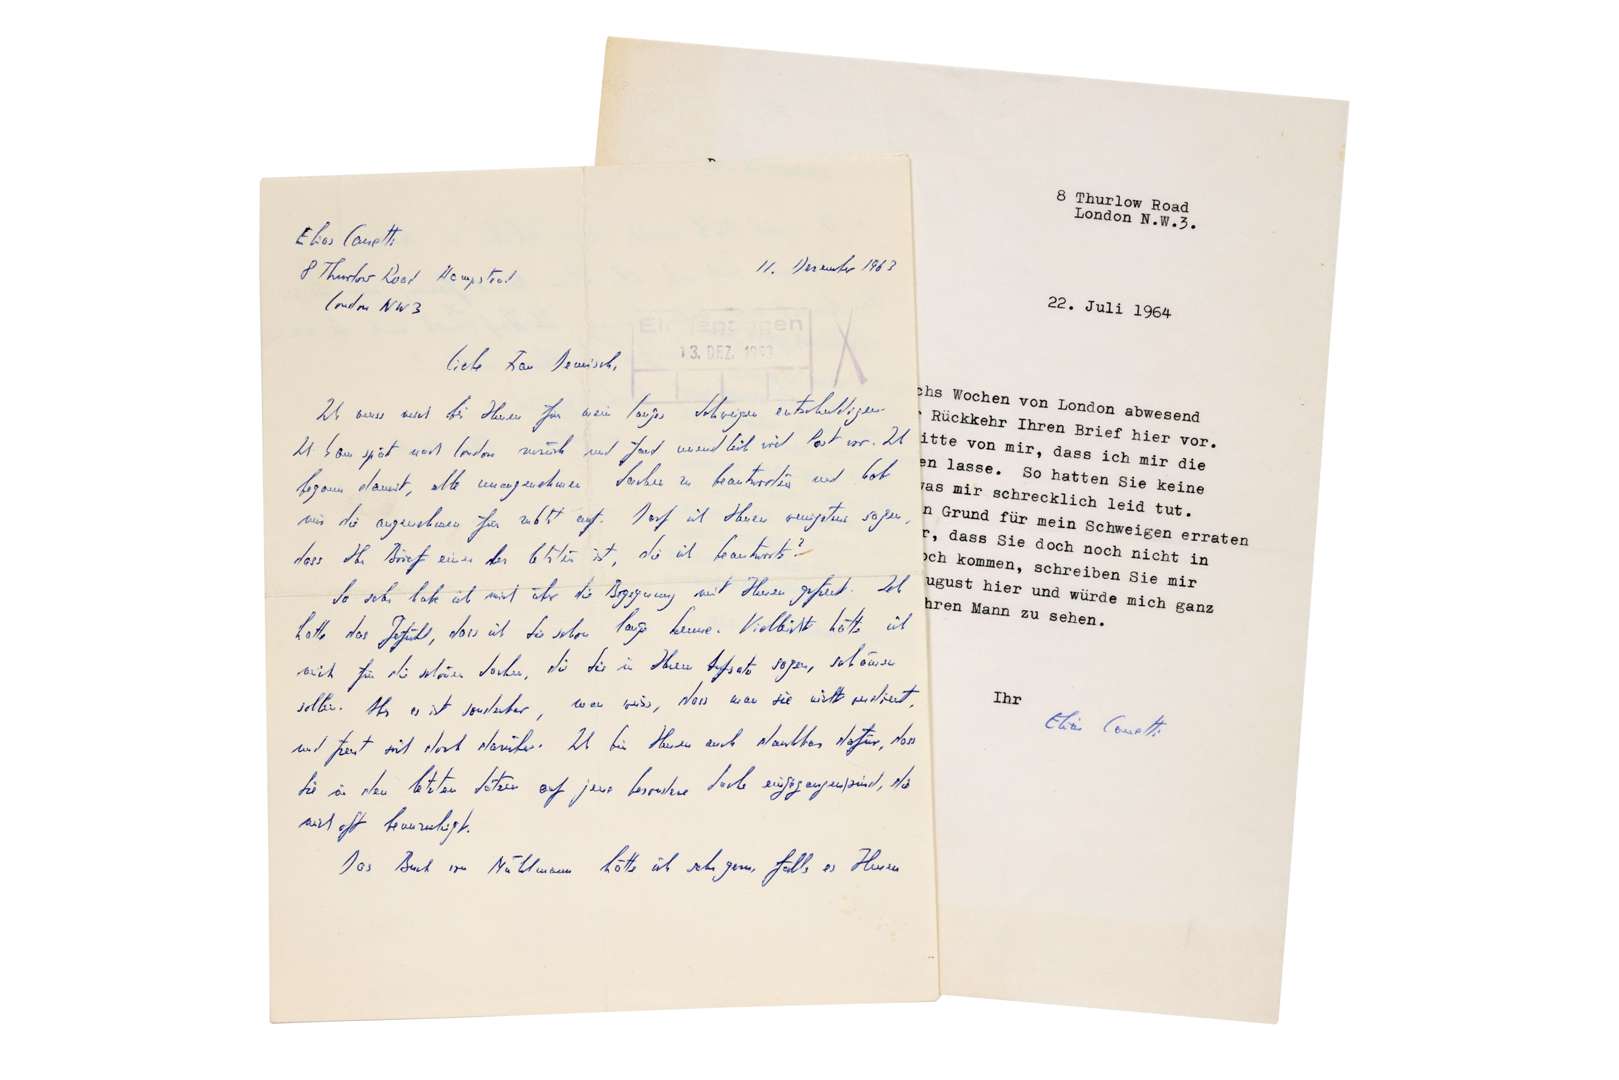 Elias Canetti
8 Thurlow Road Hampstead
London NW3
11. Dezember 1963
Eingegangen
13. DEZ. 1963
Liebe Frau Demisch,
Ich muss mich bei Ihnen für mein langes Schweigen entschuldigen.
Ich kam spät nach London zurück und fand unendlich viel Post vor. Ich
begann damit, alle unangenehmen Sachen zu beantworten und hob
mir die angenehmen für zuletzt auf. Darf ich Ihnen wenigstens sagen,
dass Ihr Brief einer der letzten ist, die ich beantworte?
So sehr habe ich mich über die Begegnung mit Ihnen gefreut. Ich
hatte das Gefühl, dass ich Sie schon lange kenne. Vielleicht hätte ich
mich für die schönen Sachen, die Sie in Ihrem Aufsatz sagen, schämen
sollen. Aber es ist sonderbar, man weiss, dass man sie nicht verdient,
und freut sich doch darüber. Ich bin Ihnen auch dankbar dafür, dass
Sie in den letzten Sätzen auf jene besondere Sache eingegangen sind, die
mich oft beunruhigt.
Das Buch von Mühlmann hätte ich sehr gern, falls es Ihnen
8 Thurlow Road
London N.W.3.
22. Juli 1964
chs Wochen von London abwesend
r Rückkehr Ihren Brief hier vor.
itte von mir, dass ich mir die
en lasse. So hatten Sie keine
was mir schrecklich leid tut.
n Grund für mein Schweigen erraten
r, dass Sie doch noch nicht in
och kommen, schreiben Sie mir
ugust hier und würde mich ganz
hren Mann zu sehen.
Ihr
Elias Canetti